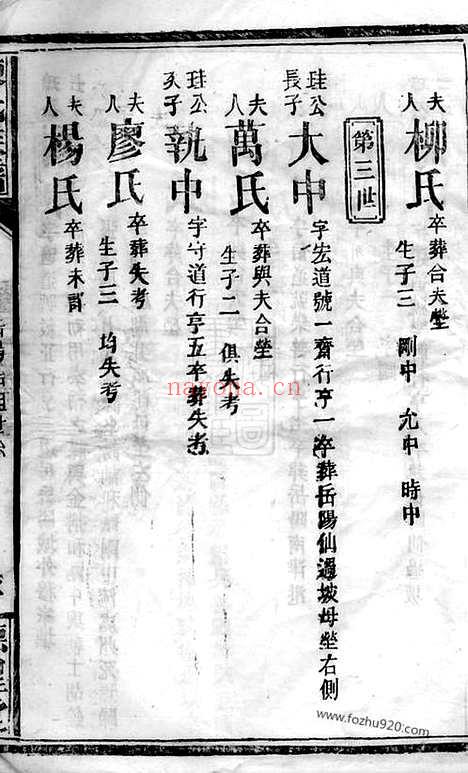 夫人柳氏 卒葬合夫塋
生子三 剛中 允中 時中
第三世
珪公長子大中 字宏道號一齋行亨一卒葬岳陽仙過坡母塋右側
夫人萬氏 卒葬與夫合塋
生子二 俱失考
珪公次子執中 字守道行亨五卒葬失考
夫人廖氏 卒葬失考
生子三 均失考
夫人楊氏 卒葬未詳
nagona.cn
www.fozhu920.com